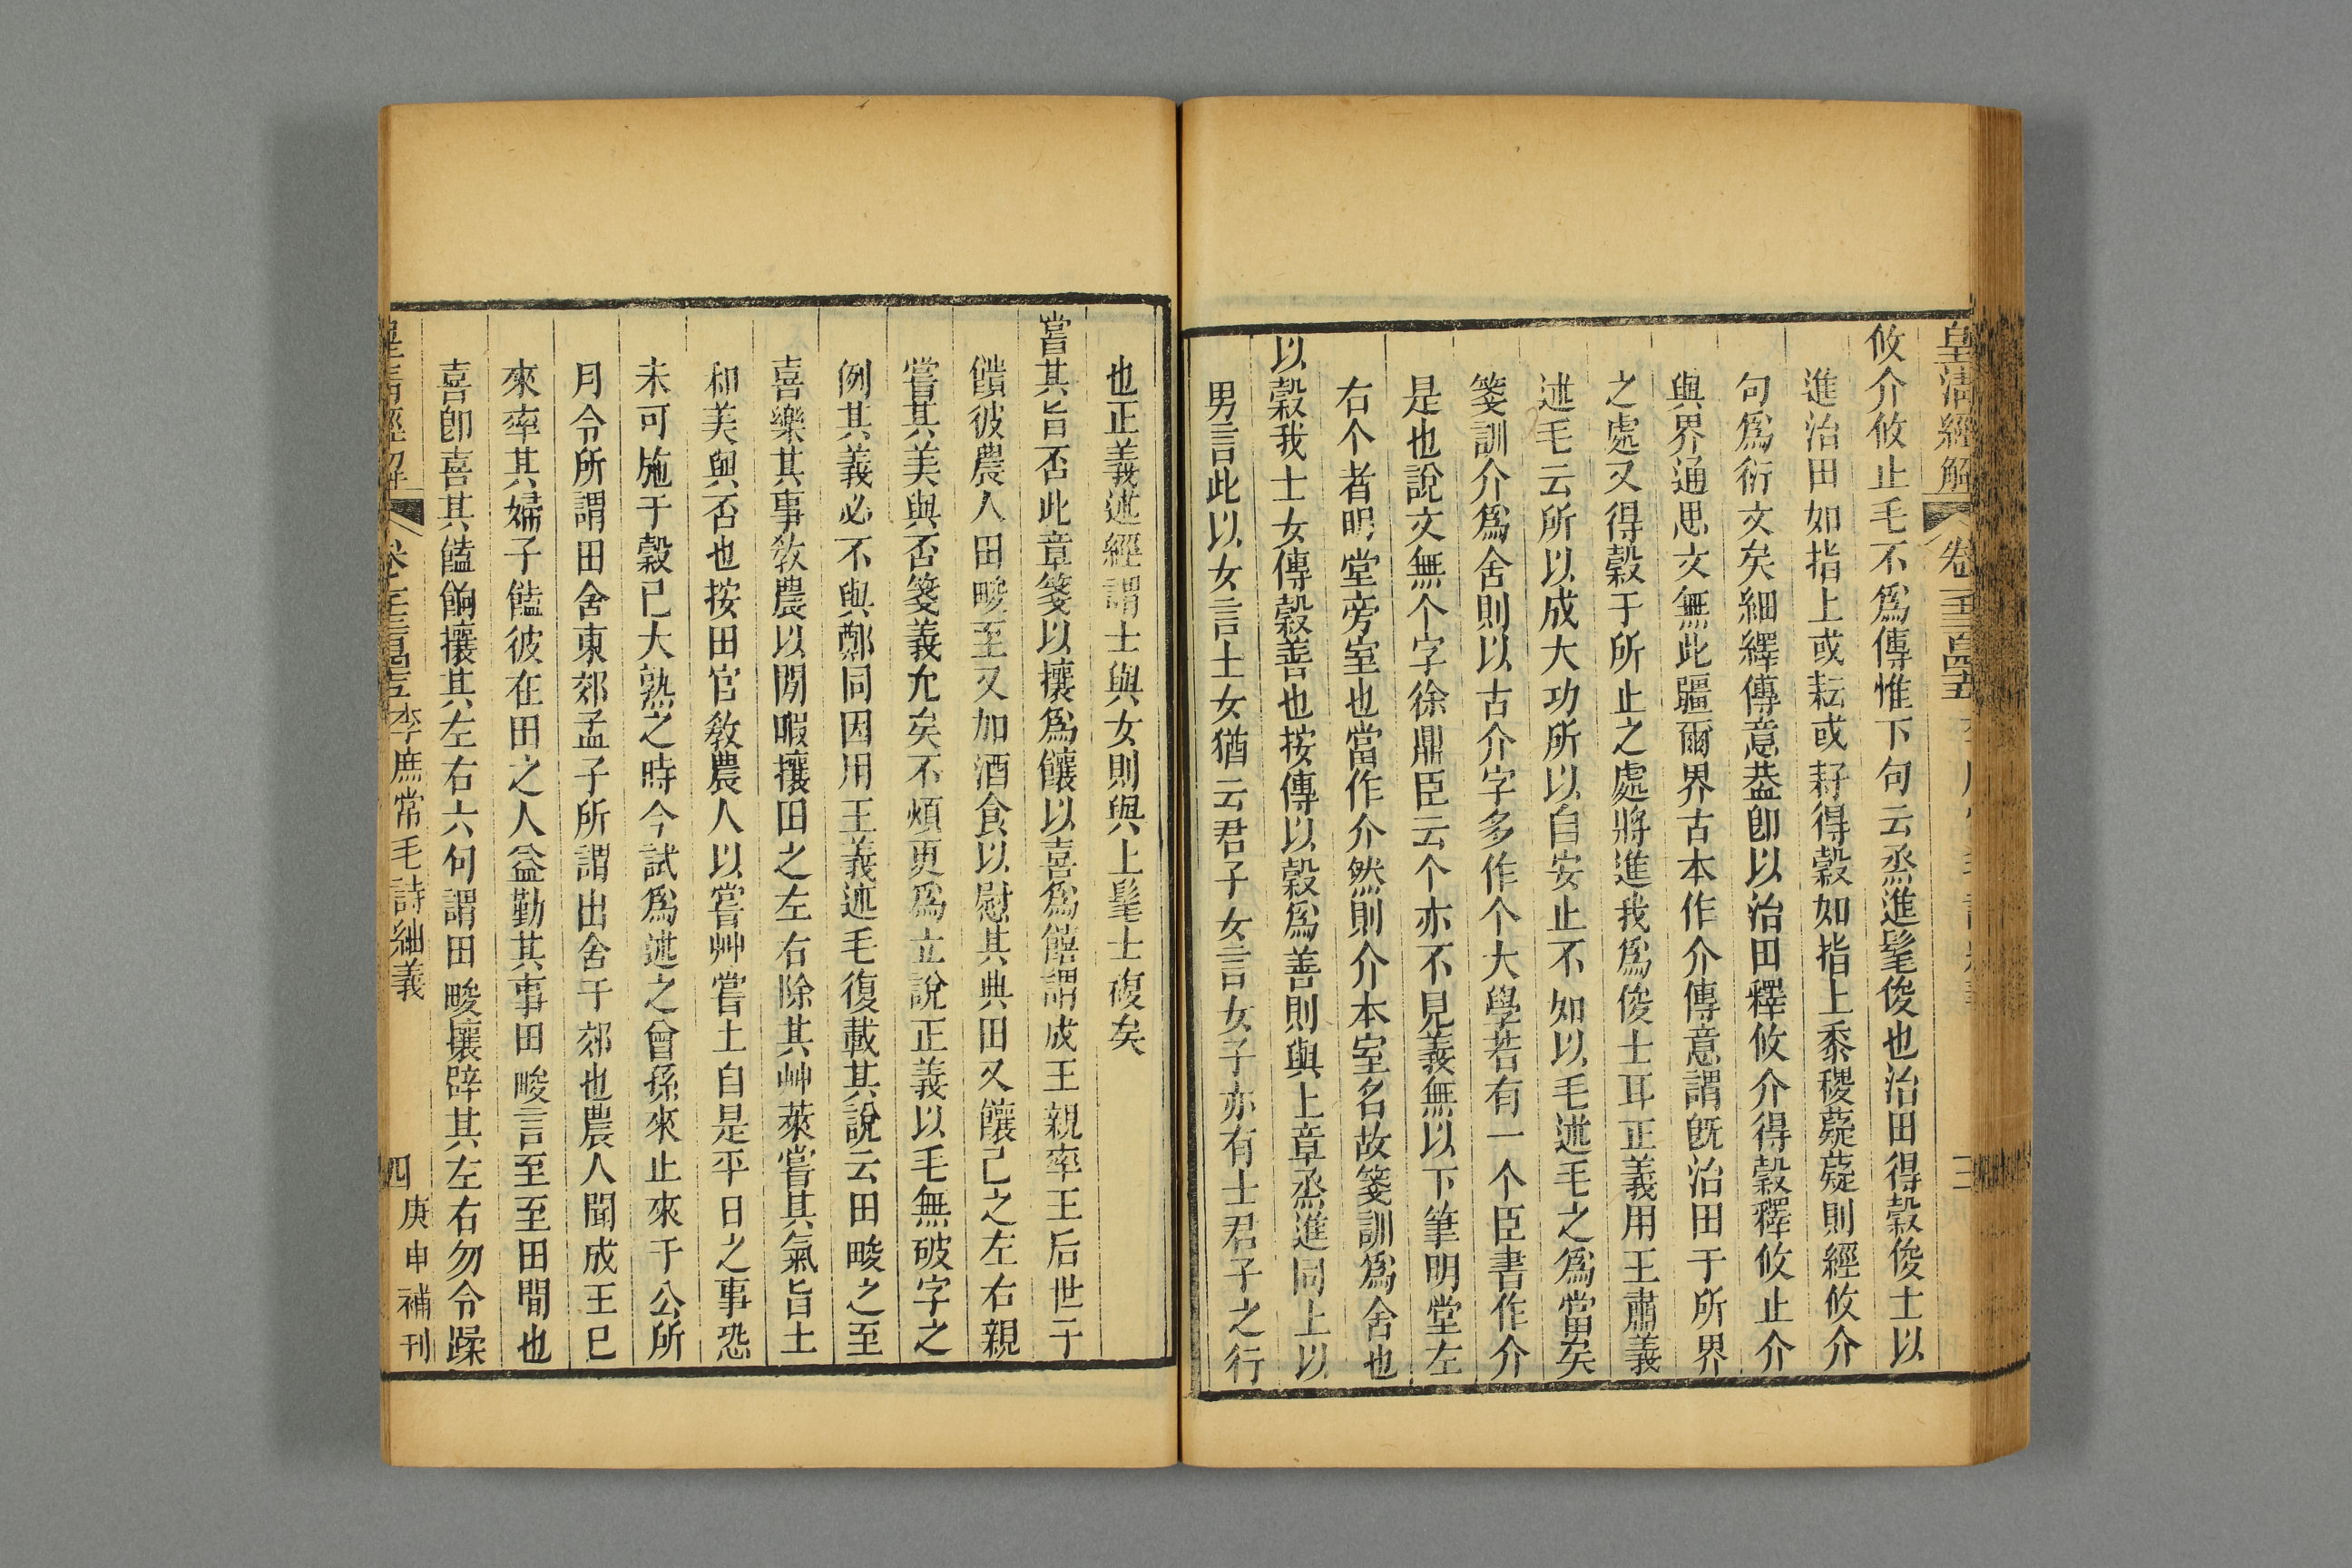 皇清經解 卷一千三百四十五 三
攸介攸止毛不爲傳惟下句云烝進髦俊也治田得穀俊士以
進治田如指上或耘或耔得穀如指上黍稷薿薿則經攸介
句爲衍文矣細繹傳意葢卽以治田釋攸介得穀釋攸止介
與界通思文無此疆爾界古本作介傳意謂旣治田于所界
之處又得穀于所止之處將進我爲俊士耳正義用王肅義
述毛云所以成大功所以自安止不如以毛述毛之爲當矣
箋訓介爲舍則以古介字多作个大學若有一个臣書作介
是也說文無个字徐鼎臣云个亦不見義無以下筆明堂左
右个者明堂旁室也當作介然則介本室名故箋訓爲舍也
以穀我士女傳穀善也按傳以穀爲善則與上章烝進同上以
男言此以女言士女猶云君子女言女子亦有士君子之行
也正義述經謂士與女則與上髦士複矣
嘗其旨否此章箋以攘爲饟以喜爲饎謂成王親率王后世子
饋彼農人田畯至又加酒食以慰其典田又饟己之左右親
嘗其美與否箋義允矣不煩更爲立說正義以毛無破字之
例其義必不與鄭同因用王義述毛復載其說云田畯之至
喜樂其事敎農以閒暇攘田之左右除其艸萊嘗其氣旨土
和美與否也按田官敎農人以嘗艸嘗土自是平日之事恐
未可施于穀已大熟之時今試爲述之曾孫來止來于公所
月令所謂田舍東郊孟子所謂出舍于郊也農人聞成王已
來率其婦子饁彼在田之人益勤其事田畯言至至田間也
喜卽喜其饁餉攘其左右六句謂田畯攘辟其左右勿令躁
皇清經解 卷一千三百四十五 李庶常毛詩紬義 四 庚申補刊